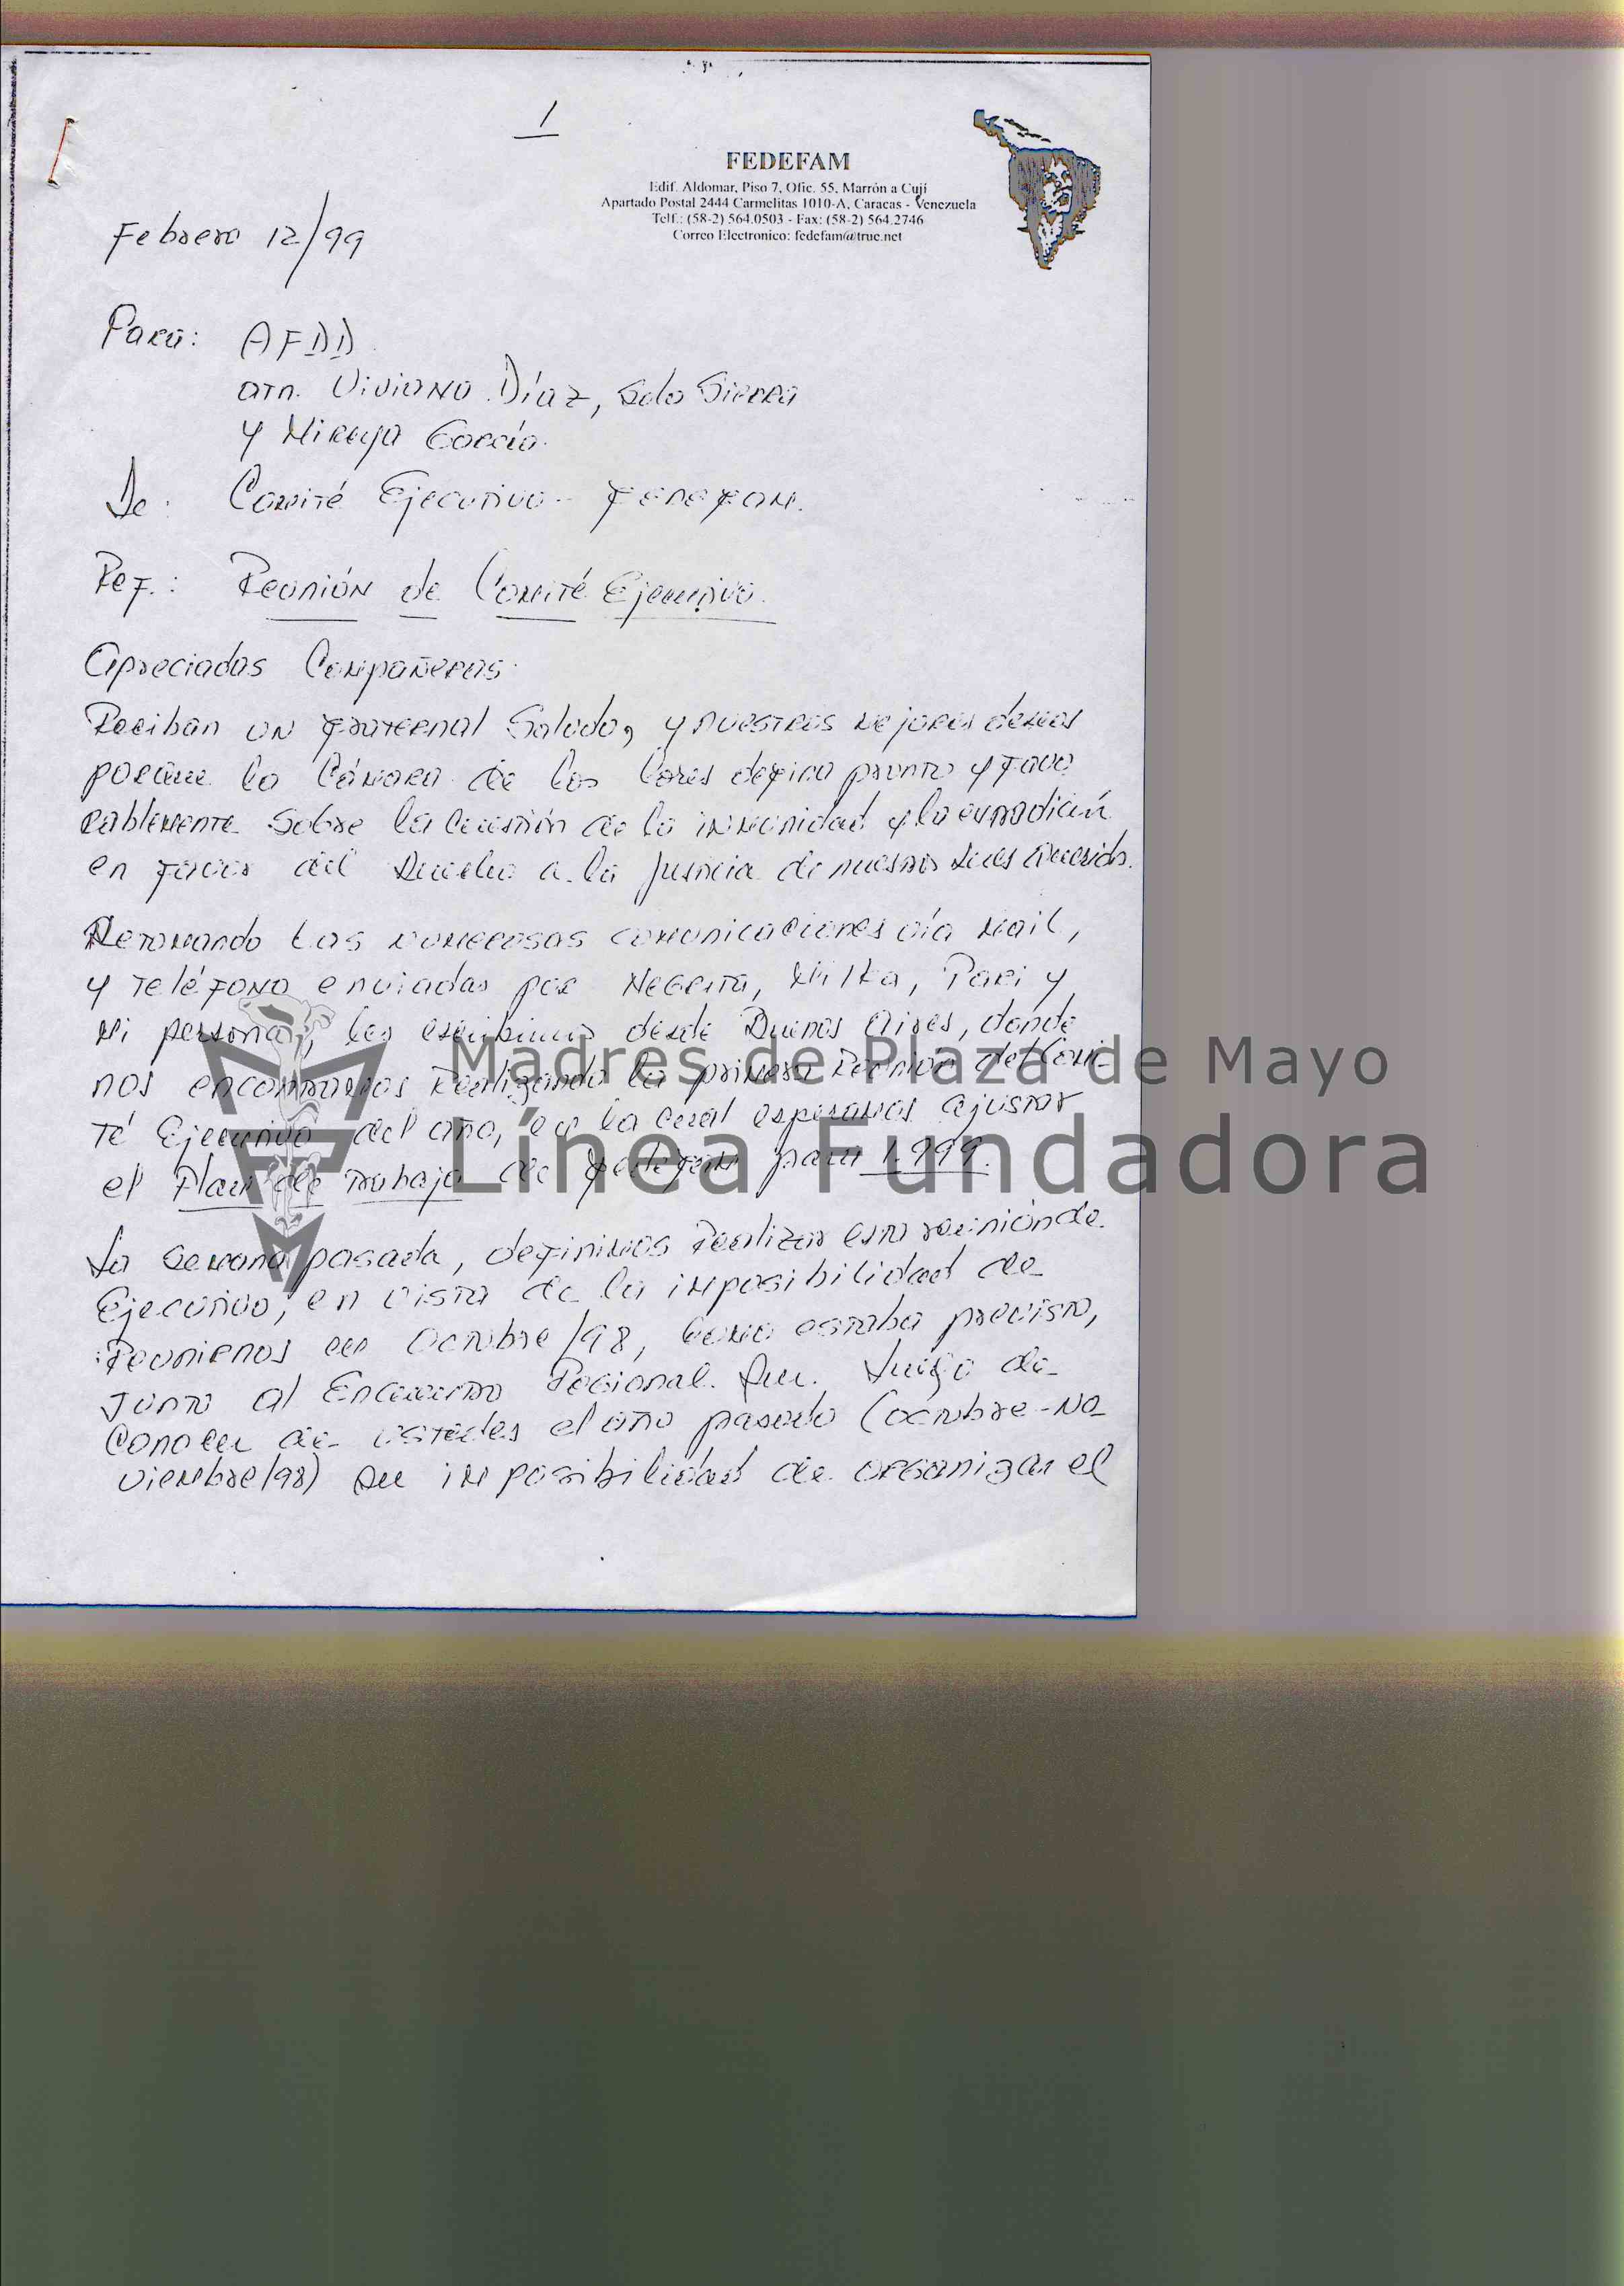 1
FEDEFAM
Edif. Aldomar, Piso 7, Ofic. 55, Marrón a Cují
Apartado Postal 2444 Carmelitas 1010-A, Caracas - Venezuela
Telf.: (58-2) 564.0503 - Fax: (58-2) 564.2746
Correo Electronico: fedefam@true.net
Febrero 12/99
Para: AFDD
atn. Viviana Díaz, Sola Sierra
y Mireya García.
De: Comité Ejecutivo - FEDEFAM.
Ref.: Reunión de Comité Ejecutivo.
Apreciadas Compañeras:
Reciban un fraternal Saludo, y nuestros mejores deseos
porque la Cámara de los Lores defina pronto y favo
rablemente sobre la cuestión de la inmunidad y la extradición
en favor del Derecho a la Justicia de nuestros seres queridos.
Retomando las numerosas comunicaciones vía mail,
y teléfono enviadas por Negrita, Milka, Pari y
mi persona, les escribimos desde Buenos Aires, donde
nos encontramos realizando la primera Reunión del Comi-
té Ejecutivo del año, en la cual esperamos ajustar
el Plan de Trabajo de Fedefam para 1.999.
La semana pasada, definimos realizar esta reunión de
Ejecutivo, en vista de la imposibilidad de
reunirnos en Octubre/98, como estaba previsto,
junto al Encuentro Regional. Luego de
conocer de ustedes el año pasado (octubre-no
viembre/98) su imposibilidad de organizar el
Madres de Plaza de Mayo
Línea Fundadora